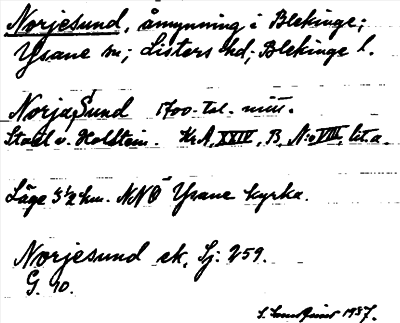 Norjesund, åmynning i Blekinge;
Ysane sn; Listers hd; Blekinge l.
Norja Sund 1700-tal. mitt.
Stael v. Holstein. KrA, XXIV, B, N:o VIII, lit a.
Läge 3 1/2 km. NNÖ Ysane kyrka.
Norjesund ek. Lj: 259.
G. 10.
1937.